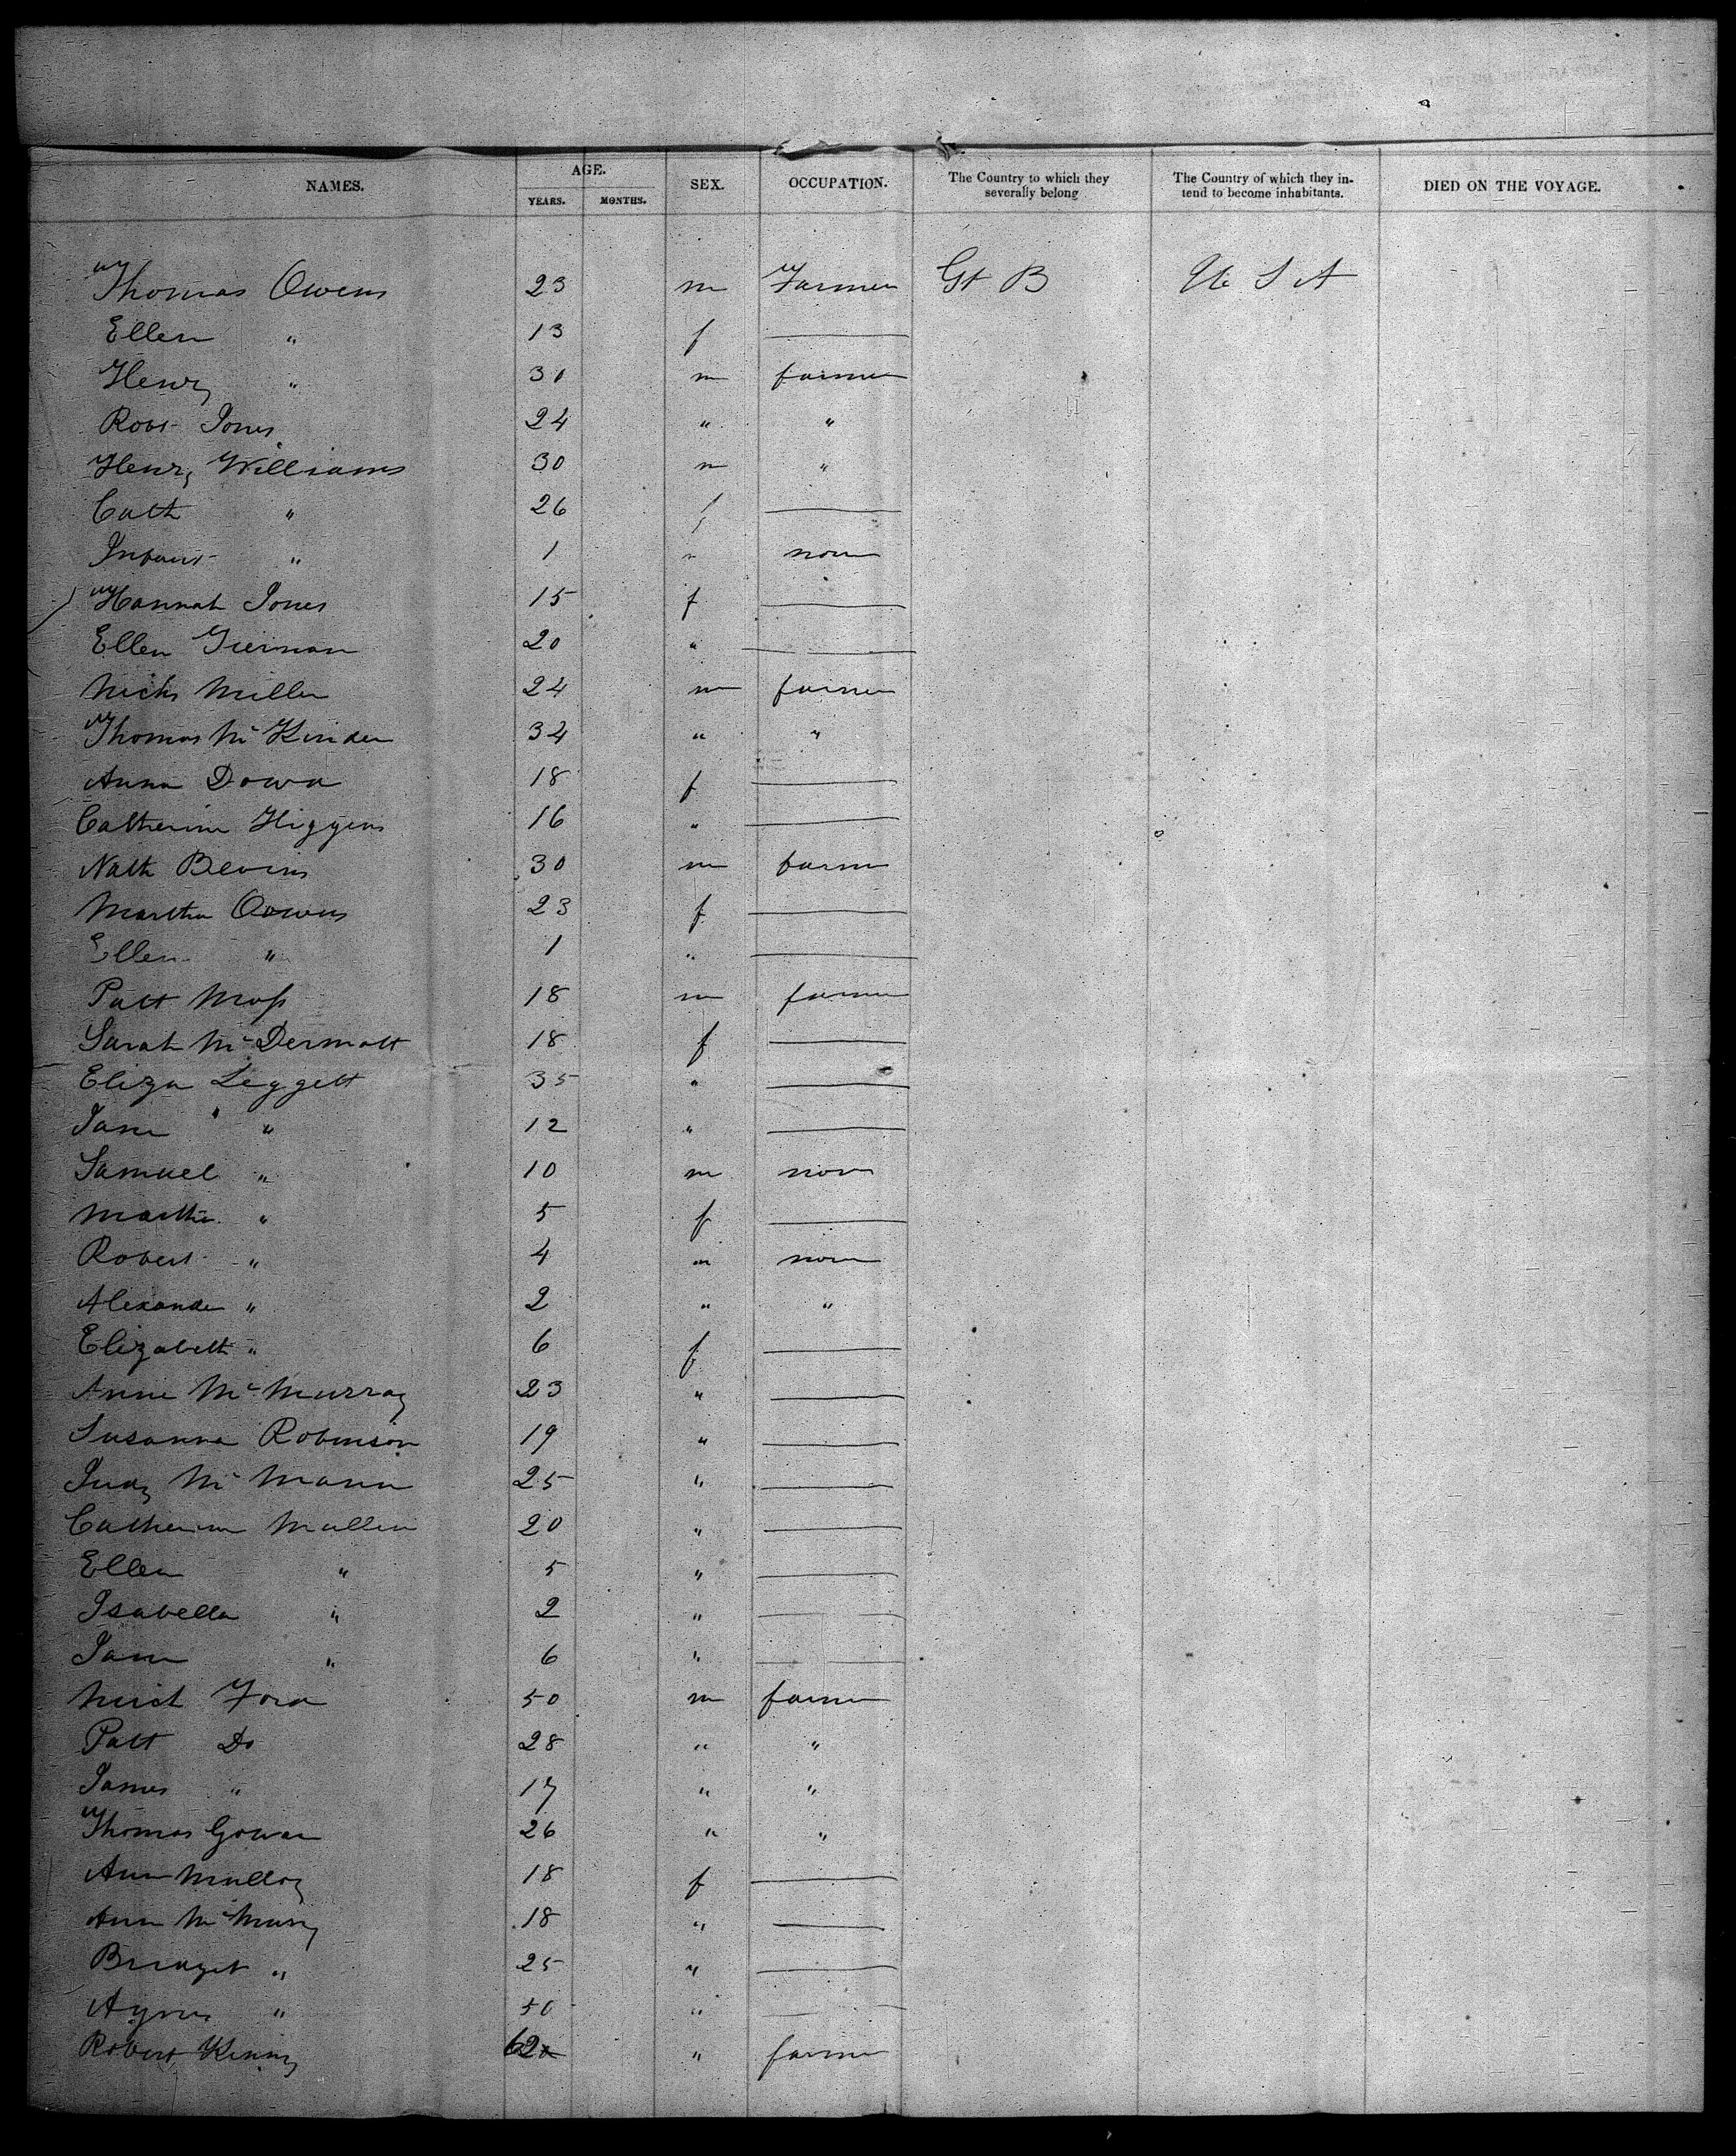 NAMES. AGE. YEARS. MONTHS. SEX. OCCUPATION. The Country to which they severally belong The Country of which they intend to become inhabitants. DIED ON THE VOYAGE.
Thomas Owens 23 m Farmer Gt B U S A
Ellen " 13 f
Henry " 30 m farmer
Robt Jones 24 " "
Henry Williams 30 m "
Cath " 26 f
Infant " 1 m none
Hannah Jones 15 f
Ellen 20 "
Nichs Miller 24 m farmer
Thomas Mc Kinder 34 " "
Anna Dowd 18 f
Catherine Higgens 16 "
Nath Bevins 30 m farmer
Martha Owens 23 f
Ellen " 1 "
Patt Moss 18 m farmer
Sarah McDermott 18 f
Eliza Leggett 35 "
Jane " 12 "
Samuel " 10 m none
Martha " 5 f
Robert " 4 m none
Alexander " 2 " "
Elizabeth " 6 f
Anne McMurray 23 "
Susanna Robinson 19 "
Judy Mc Mann 25 "
Catherine Mullen 20 "
Ellen " 5 "
Isabella " 2 "
Jane " 6 "
Mich Ford 50 m farmer
Patt Do 28 " "
James " 17 " "
Thomas Gowan 26 " "
Ann Mulloy 18 f
Ann Mc 18 "
Bridget " 25 "
Agnes " 50 "
Robert Kenny 62 " farmer